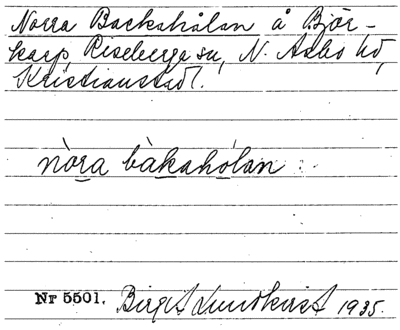 Norra Backahålan å Björ-
karp, Riseberga sn, N. Asbo hd,
Kristianstad l.
nòra bàkahólan
Nr 5501. Birgit Lundkvist 1935.